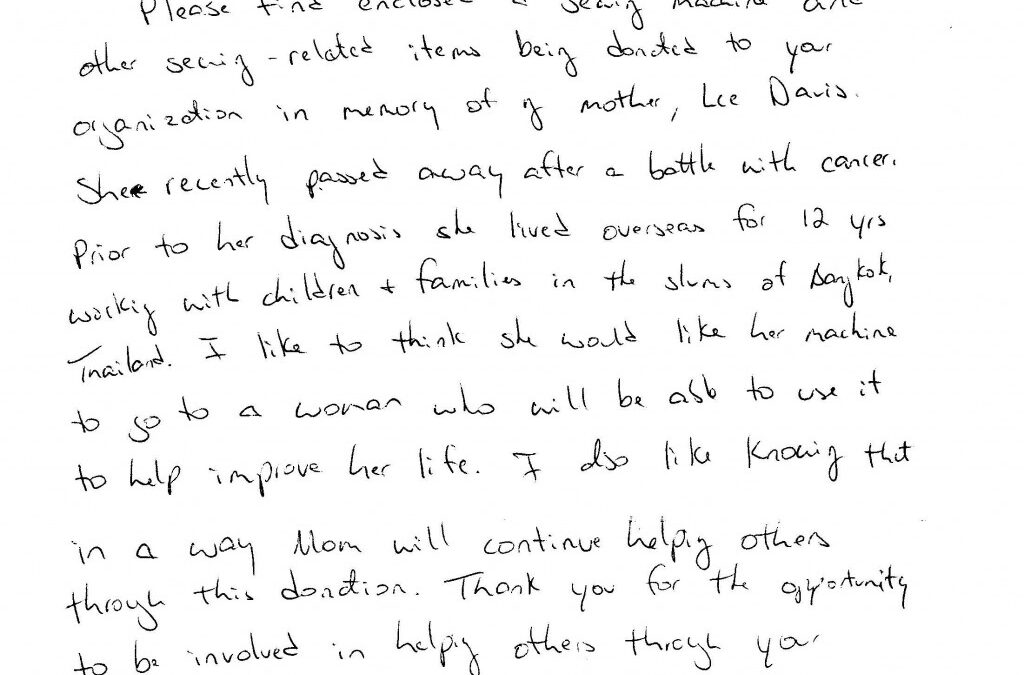 Please find enclosed a sewing machine and
other sewing-related items being donated to your
organization in memory of my mother, Lee Davis.
She recently passed away after a battle with cancer.
Prior to her diagnosis she lived overseas for 12 yrs
working with children + families in the slums of Bangkok,
Thailand. I like to think she would like her machine
to go to a woman who will be able to use it
to help improve her life. I also like knowing that
in a way Mom will continue helping others
through this donation. Thank you for the opportunity
to be involved in helping others through your